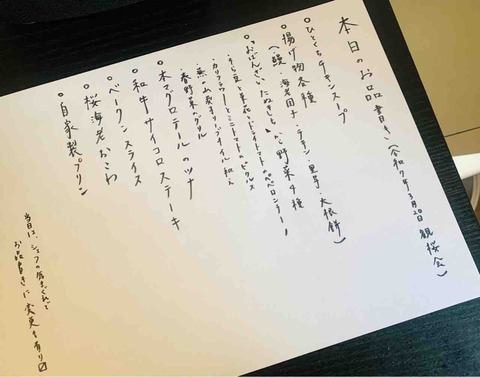 本日のお品書き(令和7年3月20日 観桜会)
・ひとくちチキンスープ
・揚げ物各種
(鰻・海老団子・チキン・里芋・大根餅)
・おばんざい
・そら豆と
・カリフラワーとミニトマトのピクルス
・春野菜のグリル
・本マグロテールのツナ
・和牛サイコロステーキ
・ベーコンスライス
・桜海老おこわ
・自家製プリン
当日は、シェフの気まぐれで
お品書きに変更も有り〼